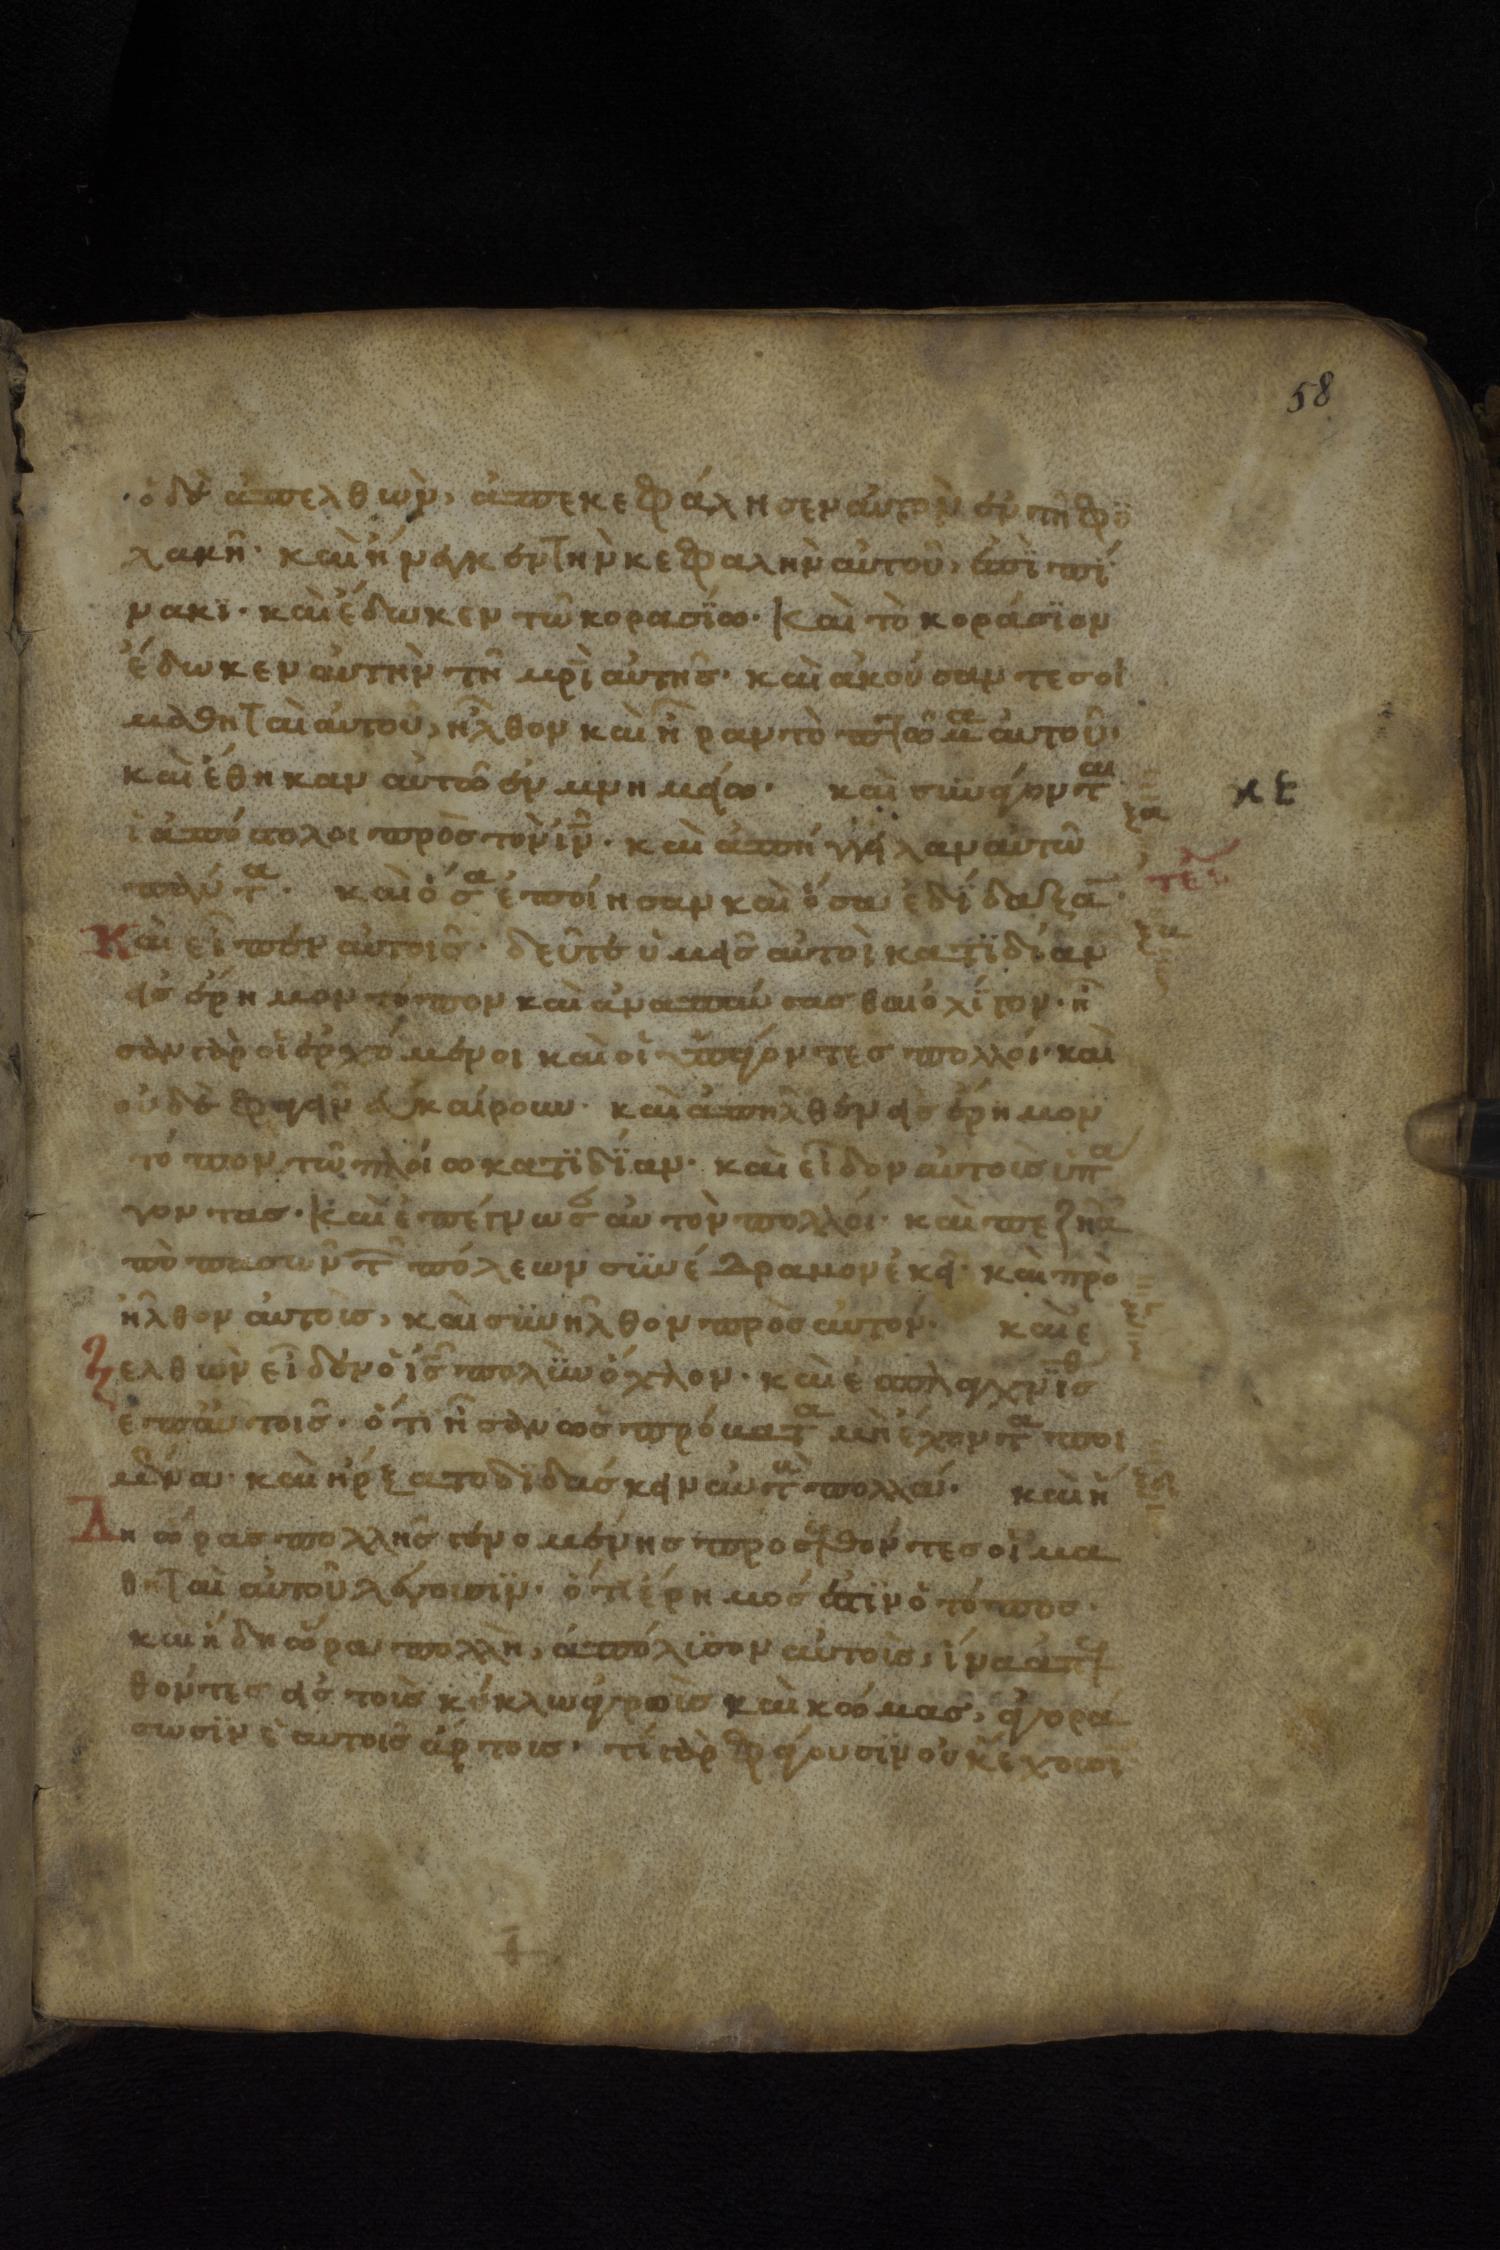 58
ὁ δὲ ἀπελθὼν, ἀπεκεφάλησεν αὐτὸν ἐν τῆ φϋ
λακῆ· καὶ ἤνεγκεν τὴν κεφαλὴν αὐτοῦ, ἐπῒ πί
νακϊ· καὶ ἔδωκεν τῶ κορασΐω· καὶ τὸ κοράσϊον
ἔδωκεν αὐτὴν τῆ μρὶ αὐτῆς· καὶ ἀκούσαντες οἱ
μαθηταὶ αὐτοῦ, ἦλθον καὶ ἦραν τὸ πτῶμα αὐτοῦ·
καὶ ἔθηκαν αὐτῶ ἐν μνημείω· καὶ σϋνάγονται
κε
ξα
ἱ ἀπόστολοι πρὸς τὸν ἰν· καὶ ἀπήγγειλαν αὐτῶ
πάντα· καὶ ὅσα ἐποίησαν καὶ ὅσα ἐδίδαξα
Καὶ εἶπεν αὐτοῖς· δεῦτε ὑμεῖς αὐτοὶ κατϊδίαν
εἰς ἔρημον τόπον καὶ ἀναπαύσασθαι ὀλίγον· ἦ
σαν γὰρ οἱ ἐρχόμενοι καὶ οἱ ὑπάγοντες πολλοί· καὶ
οὐδὲ φαγεῖν εὐκαίρουν· καὶ ἀπῆλθεν εἰς ἔρημον
τόπον τῶ πλοίω κατϊδΐαν· καὶ εἶδον αὐτοὺς ὑπά
γοντας· καὶ ἐπέγνωσ αὐτὸν πολλοί· καὶ πεζῆ ἀ
πὸ πασῶν τ πόλεων σϋνέδραμον ἐκεῖ· καὶ προ
ἦλθον αὐτοὺς, καὶ σϋνῆλθον πρὸς αὐτόν· καὶ ἐ
ξγ
ξελθὼν εἶδεν ὁ ἰς πολϋν ὄχλον· καὶ ἐσπλαγχνΐσθ
ἐπ αὐτοῖς· ὅτι ἦσαν ὡς πρόβατα μὴ ἔχοντα ποι
μένα· καὶ ἤρξατο δϊδάσκειν αὐτὰ πολλά· καὶ ἤ
ξδ
Δη ὥρας πολλῆς γενομένης προσελθόντες οἱ μα
θηταὶ αὐτοῦ λέγουσϊν· ὅτι ἔρημός ἐστϊν ὁ τόπος·
καὶ ἤδη ὥρα πολλὴ, ἀπόλϋσον αὐτοὺς, ἵνα ἀπελ
θόντες εἰς τοὺς κύκλω ἀγροὺς καὶ κώμας, ἀγορά
σωσϊν ἑαυτοῖς ἄρτους· τί γὰρ φάγουσϊν οὐκ ἔχουσϊ